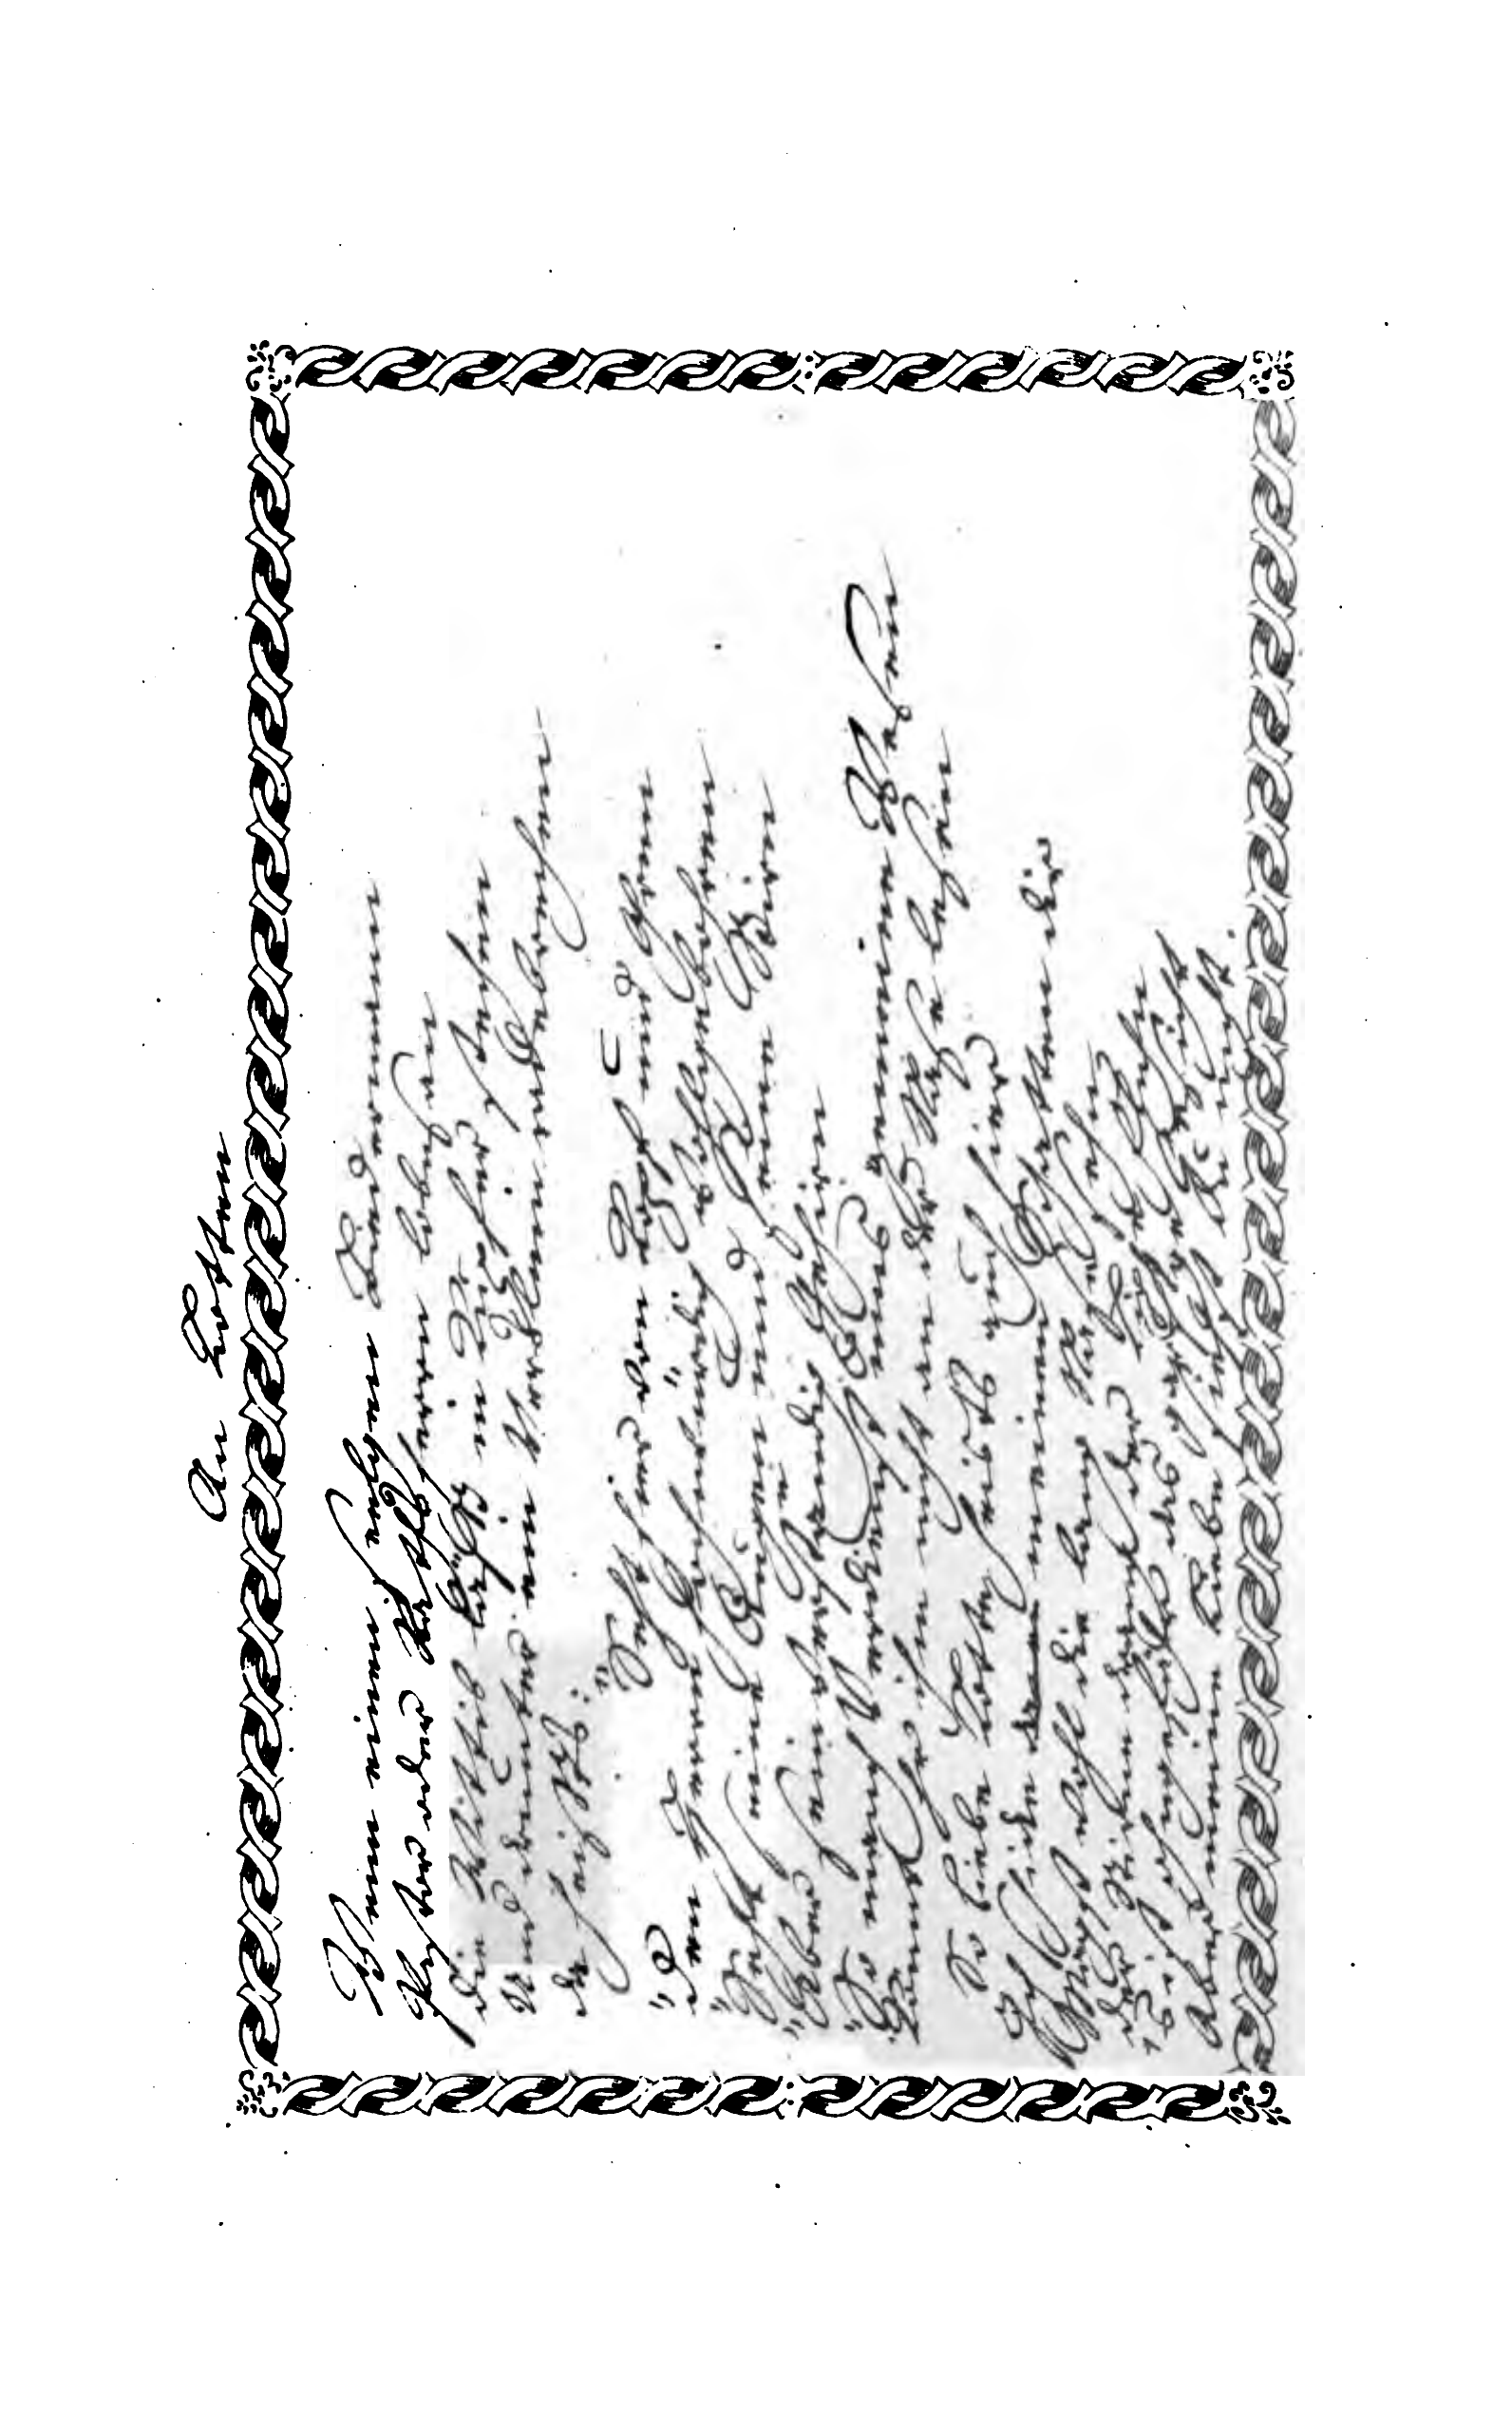 An Lotten
Wenn einen seelgen Biedermann
Pastor oder Rathsherrn lobesan
die Wittib läßt in Kupfer stechen
Und drunter ein Verslein radebrechen
da heißts:
"Seht hier von Kopf und Ohren
"den Herrn Ehrwürdig Wohlgebohren
"Seht seine Augen und seine Stirn
"Aber sein verständig Gehirn
"So manch Verdienst ums gemeine Wesen
"Könnt ihr ihm nicht an der Nase lesen
So liebe Lotte heists auch hier
Ich schicke meinen Schatten dir
Magst wohl die lange Nase sehn
der Stirne drang der Lippe Flehn
's ist ohngefähr das garstge Gesicht
Aber meine Liebe siehst du nicht.